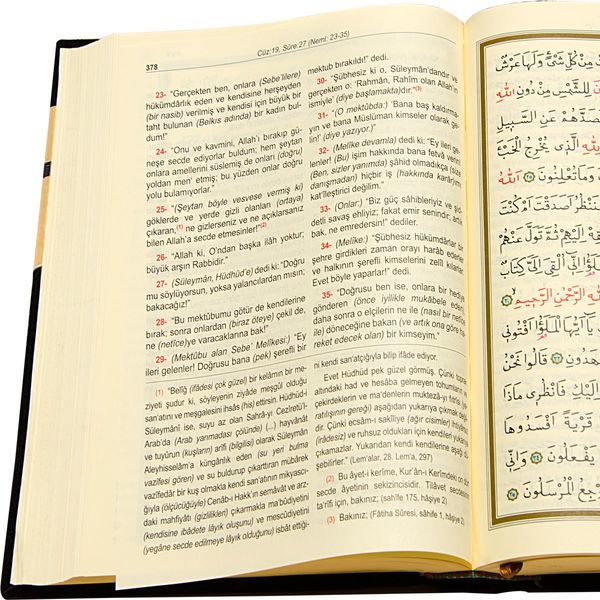 Cüz:19, Sûre:27 (Neml: 23-35)
378
23- "Gerçekten ben, onlara (Sebe'lilere)
hükümdârlık eden ve kendisine herşeyden
(bir nasib) verilmiş ve kendisi için büyük bir
taht bulunan (Belkıs adında) bir kadın bul-
dum!"
24- "Onu ve kavmini, Allah'ı bırakıp gü-
neşe secde ediyorlar buldum; hem şeytan
onlara amellerini süslemiş de onları (doğru)
yoldan men' etmiş; bu yüzden onlar doğru
yolu bulamıyorlar."
25- "(Şeytan böyle vesvese vermiş ki)
göklerde ve yerde gizli olanları (ortaya)
çıkaran,(1) ne gizlerseniz ve ne açıklarsanız
bilen Allah'a secde etmesinler!"(2)
26- "Allah ki, O'ndan başka ilâh yoktur;
büyük arşın Rabbidir."
27- (Süleyman, Hüdhüd'e) dedi ki: "Doğru
mu söylüyorsun, yoksa yalancılardan mısın;
bakacağız!"
28- "Bu mektûbumu götür de kendilerine
bırak; sonra onlardan (biraz öteye) çekil de,
ne (netîce)ye varacaklarına bak!"
29- (Mektûbu alan Sebe' Melîkesi:) "Ey
ileri gelenler! Doğrusu bana (pek) şerefli bir
mektub bırakıldı!" dedi.
30- "Şübhesiz ki o, Süleymân'dandır ve
gerçekten o: 'Rahmân, Rahîm olan Allah'ın
ismiyle' (diye başlamakta)dır."(3)
31- "(O mektûbda:) 'Bana baş kaldırma-
yın ve bana Müslüman kimseler olarak ge-
lin!' (diye yazıyor.)"
32- (Melîke devamla) dedi ki: "Ey ileri ge-
lenler! (Bu) işim hakkında bana fetvâ verin!
(Ben, sizler yanımda) şâhid olmadıkça (size
danışmadan) hiçbir iş (hakkında karâr)ımı
kat'îleştirici değilim."
33- (Onlar:) "Biz güç sâhibleriyiz ve şid-
detli savaş ehliyiz; fakat emir senindir; artık
bak, ne emredersin!" dediler.
34- (Melîke:) "Şübhesiz hükümdârlar bir
şehre girdikleri zaman orayı harâb ederler
ve halkının şerefli kimselerini zelîl kılarlar.
Evet böyle yaparlar!" dedi.
35- "Doğrusu ben ise, onlara bir hediye
gönderen (önce iyilikle mukābele eden),
daha sonra o elçilerin ne ile (nasıl bir netîce
ile) döneceğine bakan (ve artık ona göre ha-
reket edecek olan) bir kimseyim."
(1) "Belîğ (ifâdesi çok güzel) bir kelâmın bir me-
ziyeti şudur ki, söyleyenin ziyâde meşgūl olduğu
san'atını ve meşgalesini ihsâs (his) ettirsin. Hüdhüd-i
Süleymânî ise, suyu az olan Sahrâ-yı Cezîretü'l-
Arab'da (Arab yarımadası çölünde) (...) hayvânât
ve tuyûrun (kuşların) arîfi (bilgilisi) olarak Süleymân
Aleyhisselâm'a künğânlık eden (su yeri bulma
vazîfesi gören) ve su buldurup çıkarttıran mübârek
vazîfedâr bir kuş olmakla kendi san'atının mikyascı-
ğıyla (ölçücüğüyle) Cenâb-ı Hakk'ın semâvât ve arz-
daki mahfiyâtı (gizlilikleri) çıkarmakla ma'bûdiyetini
(kendisine ibâdete lâyık oluşunu) ve mescûdiyetini
(yegâne secde edilmeye lâyık olduğunu) isbât ettiği-
ni kendi san'atçığıyla bilip ifâde ediyor.
Evet Hüdhüd pek güzel görmüş. Çünki toprak
altındaki had ve hesâba gelmeyen tohumların ve
çekirdeklerin ve ma'denlerin muktezâ-yı fıtrîsi (ya-
ratılışının gereği) aşağıdan yukarıya çıkmak değil-
dir. Çünki ecsâm-ı sakîliye (ağır cisimler) ihtiyârsız
(irâdesiz) ve ruhsuz oldukları için kendileri yukarı
çıkamazlar. Yukarıdan kendi kendilerine aşağı dü-
şebilirler." (Lem'alar, 28. Lem'a, 297)
(2) Bu âyet-i kerîme, Kur'ân-ı Kerîmdeki on dört
secde âyetinin sekizincisidir. Tilâvet secdesinin
ta'rîfi için, bakınız; (sahîfe 175, hâşiye 2)
(3) Bakınız; (Fâtiha Sûresi, sâhife 1, hâşiye 2)
مِنْ كُلِّ شَيْءٍ وَلَهَا عَرْشٌ
لِلشَّمْسِ مِنْ دُونِ اللّٰهِ
فَصَدَّهُمْ عَنِ السَّبِيلِ
الَّذِي يُخْرِجُ الْخَبْءَ
وَمَا تُعْلِنُونَ ۝ اَللّٰهُ
سَنَنْظُرُ اَصَدَقْتَ اَمْ كُنْتَ
اِلَيْهِمْ ثُمَّ تَوَلَّ عَنْهُمْ
اِنِّٓي اُلْقِيَ اِلَيَّ كِتَابٌ
اللّٰهِ الرَّحْمٰنِ الرَّحِيمِ
يَٓا اَيُّهَا الْمَلَؤُا اَفْتُونِي
قَالُوا نَحْنُ
اِلَيْكِ فَانْظُرِي مَاذَا
قَرْيَةً اَفْسَدُوهَا
يَفْعَلُونَ ۝ وَاِنِّي
يَرْجِعُ الْمُرْسَلُونَ